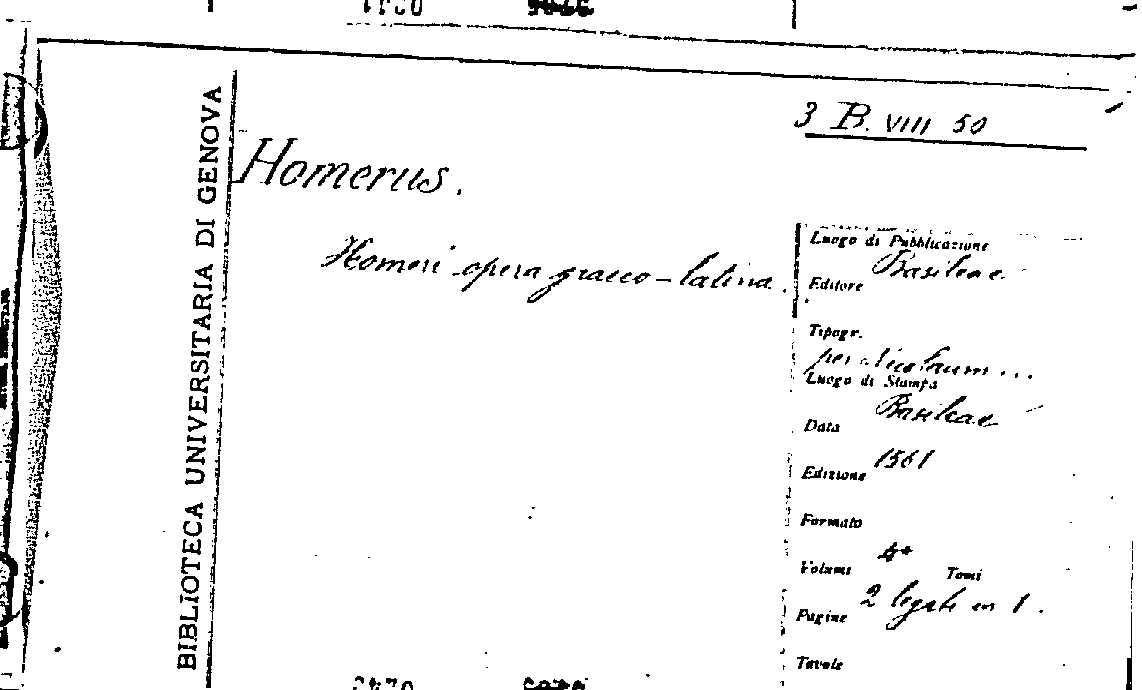 BIBLIOTECA UNIVERSITARIA DI GENOVA
3 B. VIII 50
Homerus.
Homeri opera graeco-latina.
Luogo di Pubblicazione
Basileae
Editore
Tipogr.
per Nicolaum ...
Luogo di Stampa
Basileae
Data
1561
Edizione
Formato
4°
Volumi Tomi
2 legati in 1.
Pagine
Tavole